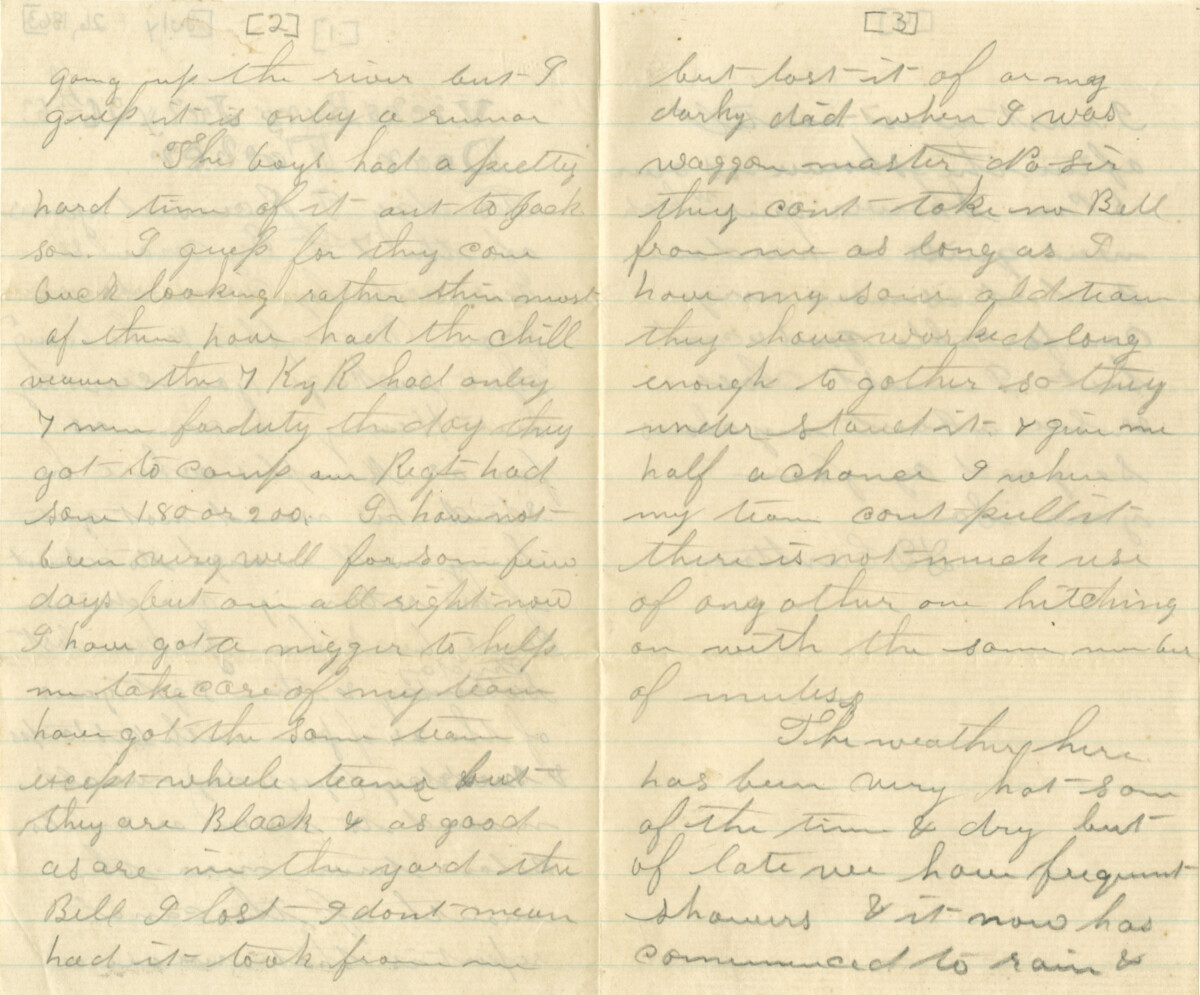 [2]
going up the river but I
guess it is onley a rumor
The boys had a pretty
hard time of it out to Jack
son. I guess for they come
back looking rather thin most
of them have had the chill
veaver the 7 Ky R had onley
7 men for duty the day they
got to camp our Regt had
some 180 or 200. I have not
been very well for som few
days but am all right now
I have got a nigger to help
me take care of my team
have got the same team
except wheele teams but
they are Black & as good
as are in the yard the
Bell I lost I dont mean
had it took from me
[3]
but lost it of or my
darky did when I was
waggon master No Sir
they cant take no Bell
from me as long as I
have my same old team
they have worked long
enough to gother so they
under stand it. & give me
half a chance & when
my team cant pull it
there is not much use
of any other one hitching
on with the same number
of mules
The weather here
has been very hot som
of the time & dry but
of late we have frequent
showers & it now has
commenced to rain &